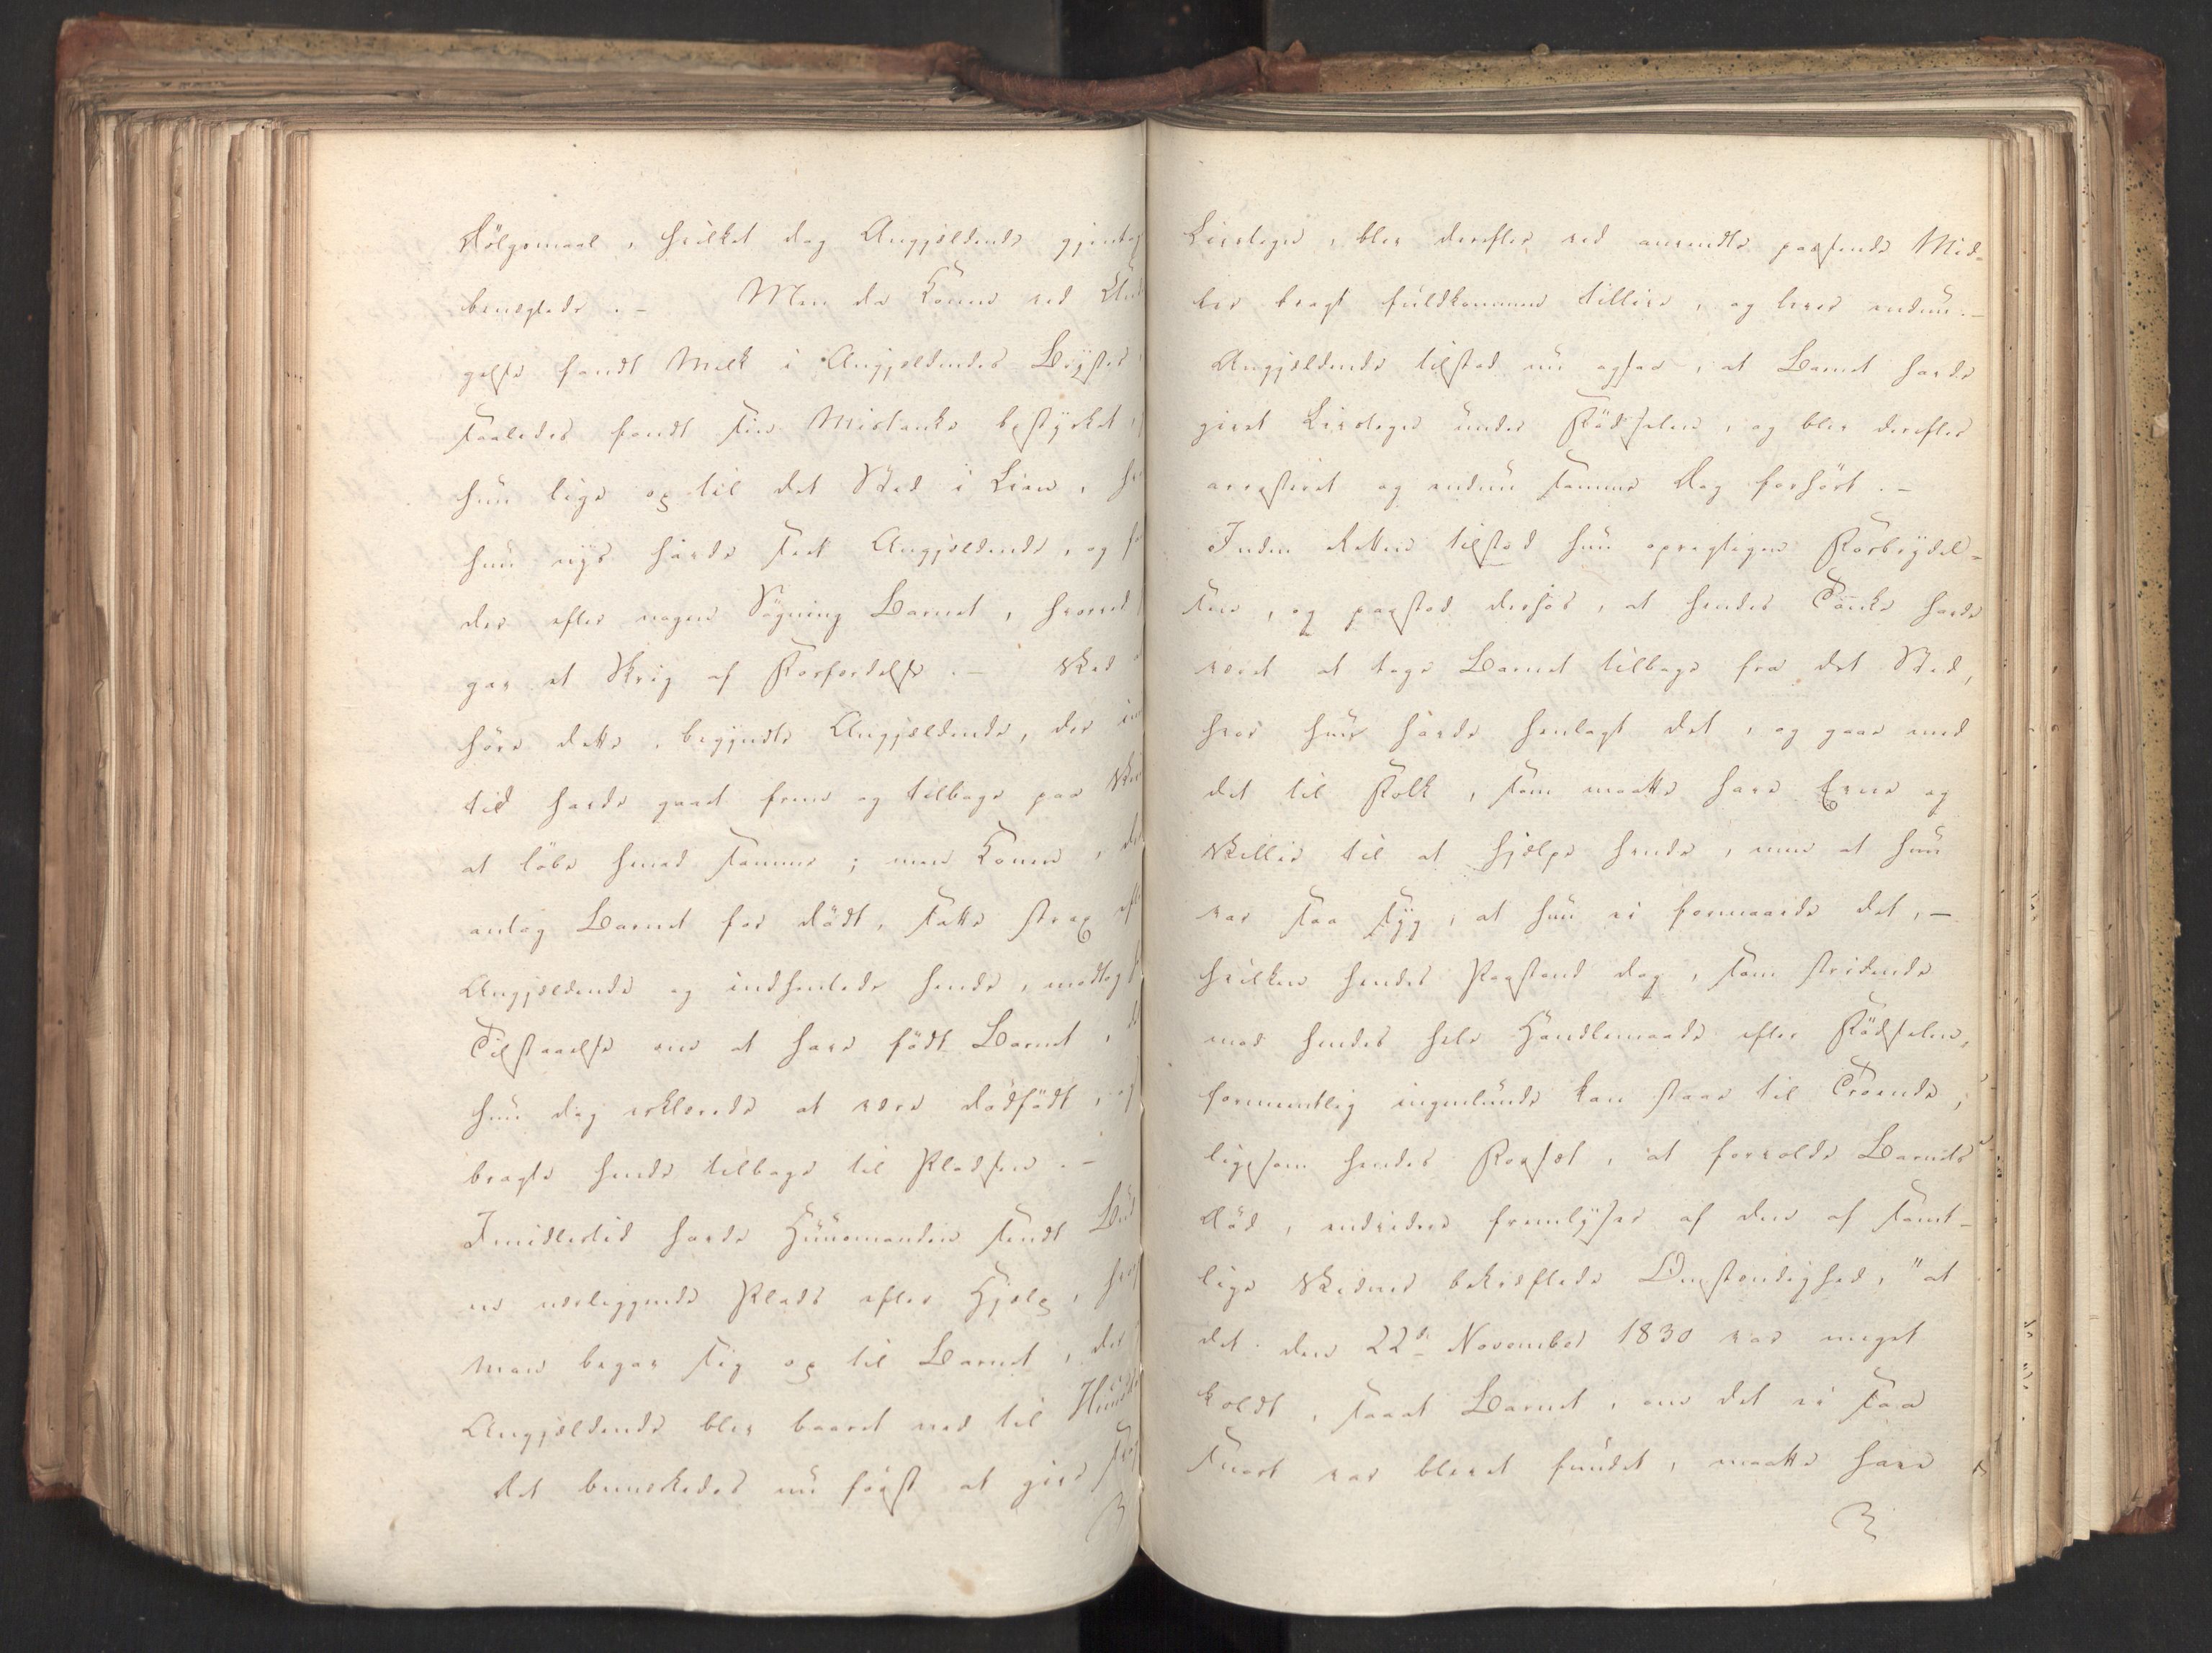 Dølgsmaal, hvilket dog Angjeldende
benegtede. - Men da Konen ved
gelse fandt Melk i Angjeldendes Bryster
saaledes fandt sin Mistanke bestyrket,
hun lige op til det Sted i Lien,
hun nys havde seet Angjeldende, og
der efter nogen Søgning Barnet, hvorved
gav et Skrig af Forfærdelse. - Ved
høre dette, begyndte Angjeldende, der
tid havde gaaet frem og tilbage paa
at løbe henad samme; men Konen,
antog Barnet for dødt, satte strax
Angjeldende og indhentede hende, modtog
Tilstaaelse om at have født Barnet,
hun dog erklærede at være dødfødt, og
bragte hende tilbage til Pladsen. -
Imidlertid havde Huusmanden sendt Bud
en nærliggende Plads efter Hjelp,
man begav sig op til Barnet,
Angjeldende blev baaret ned til
Det bemærkedes nu først at give
Livstegn, blev derefter ved anvendte passende Mid-
ler bragt fuldkommen tillive, og lever endnu. -
Angjeldende tilstod nu ogsaa, at Barnet havde
givet Livstegn under Fødselen, og blev derefter
arresteret og endnu samme Dag forhørt. -
Inden Retten tilstod hun opregtigen Forbrydel-
sen, og paastod derhos, at hendes Tanke havde
været at tage Barnet tilbage fra det Sted,
hvor hun havde henlagt det, og gaae med
det til Folk, som maatte have Evne og
Villie til at hjelpe hende, men at hun
var saa syg, at hun ei formaaede det, -
hvilken hendes Paastand dog, som stridende
mod hendes hele Handlemaade efter Fødselen,
formeentlig ingenlunde kan staae til Troende,
ligesom hendes Forsæt, at forvolde Barnets
Død, endvidere fremlyser af den af samt-
lige Vidner bekræftede Omstændighed, "at
det den 22de November 1830 var meget
koldt, saaat Barnet, om det ei saa
snart var blevet fundet, maatte have